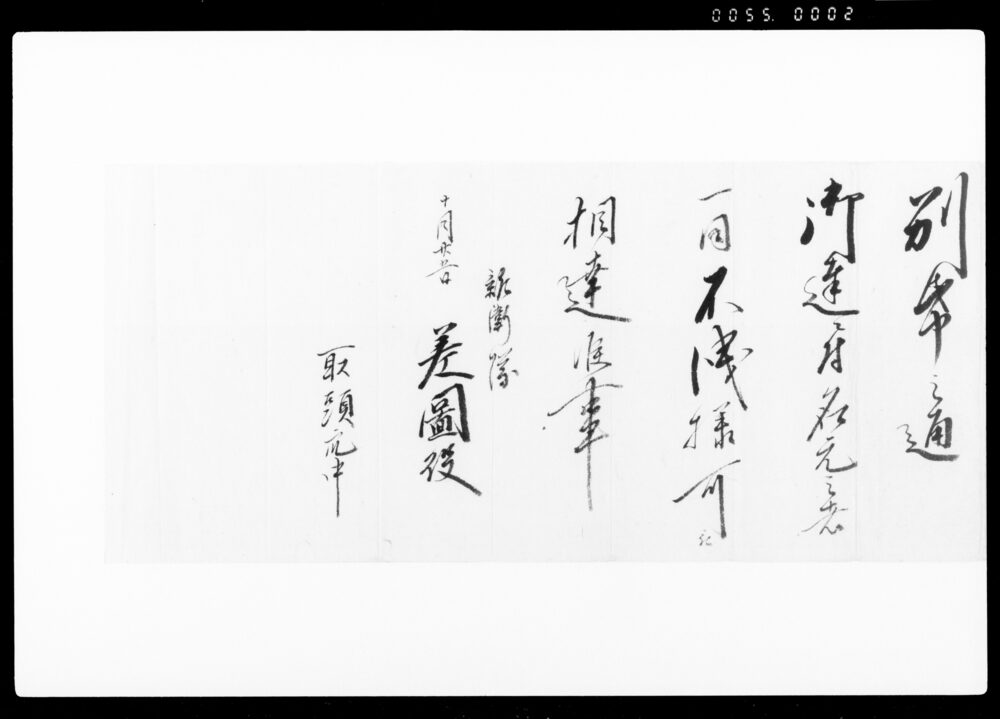 0055. 0002
別帋之通
御達ニ付名元之者
一同不洩様可
相達候事
親衛隊
十月廿
差圖役
取頭中